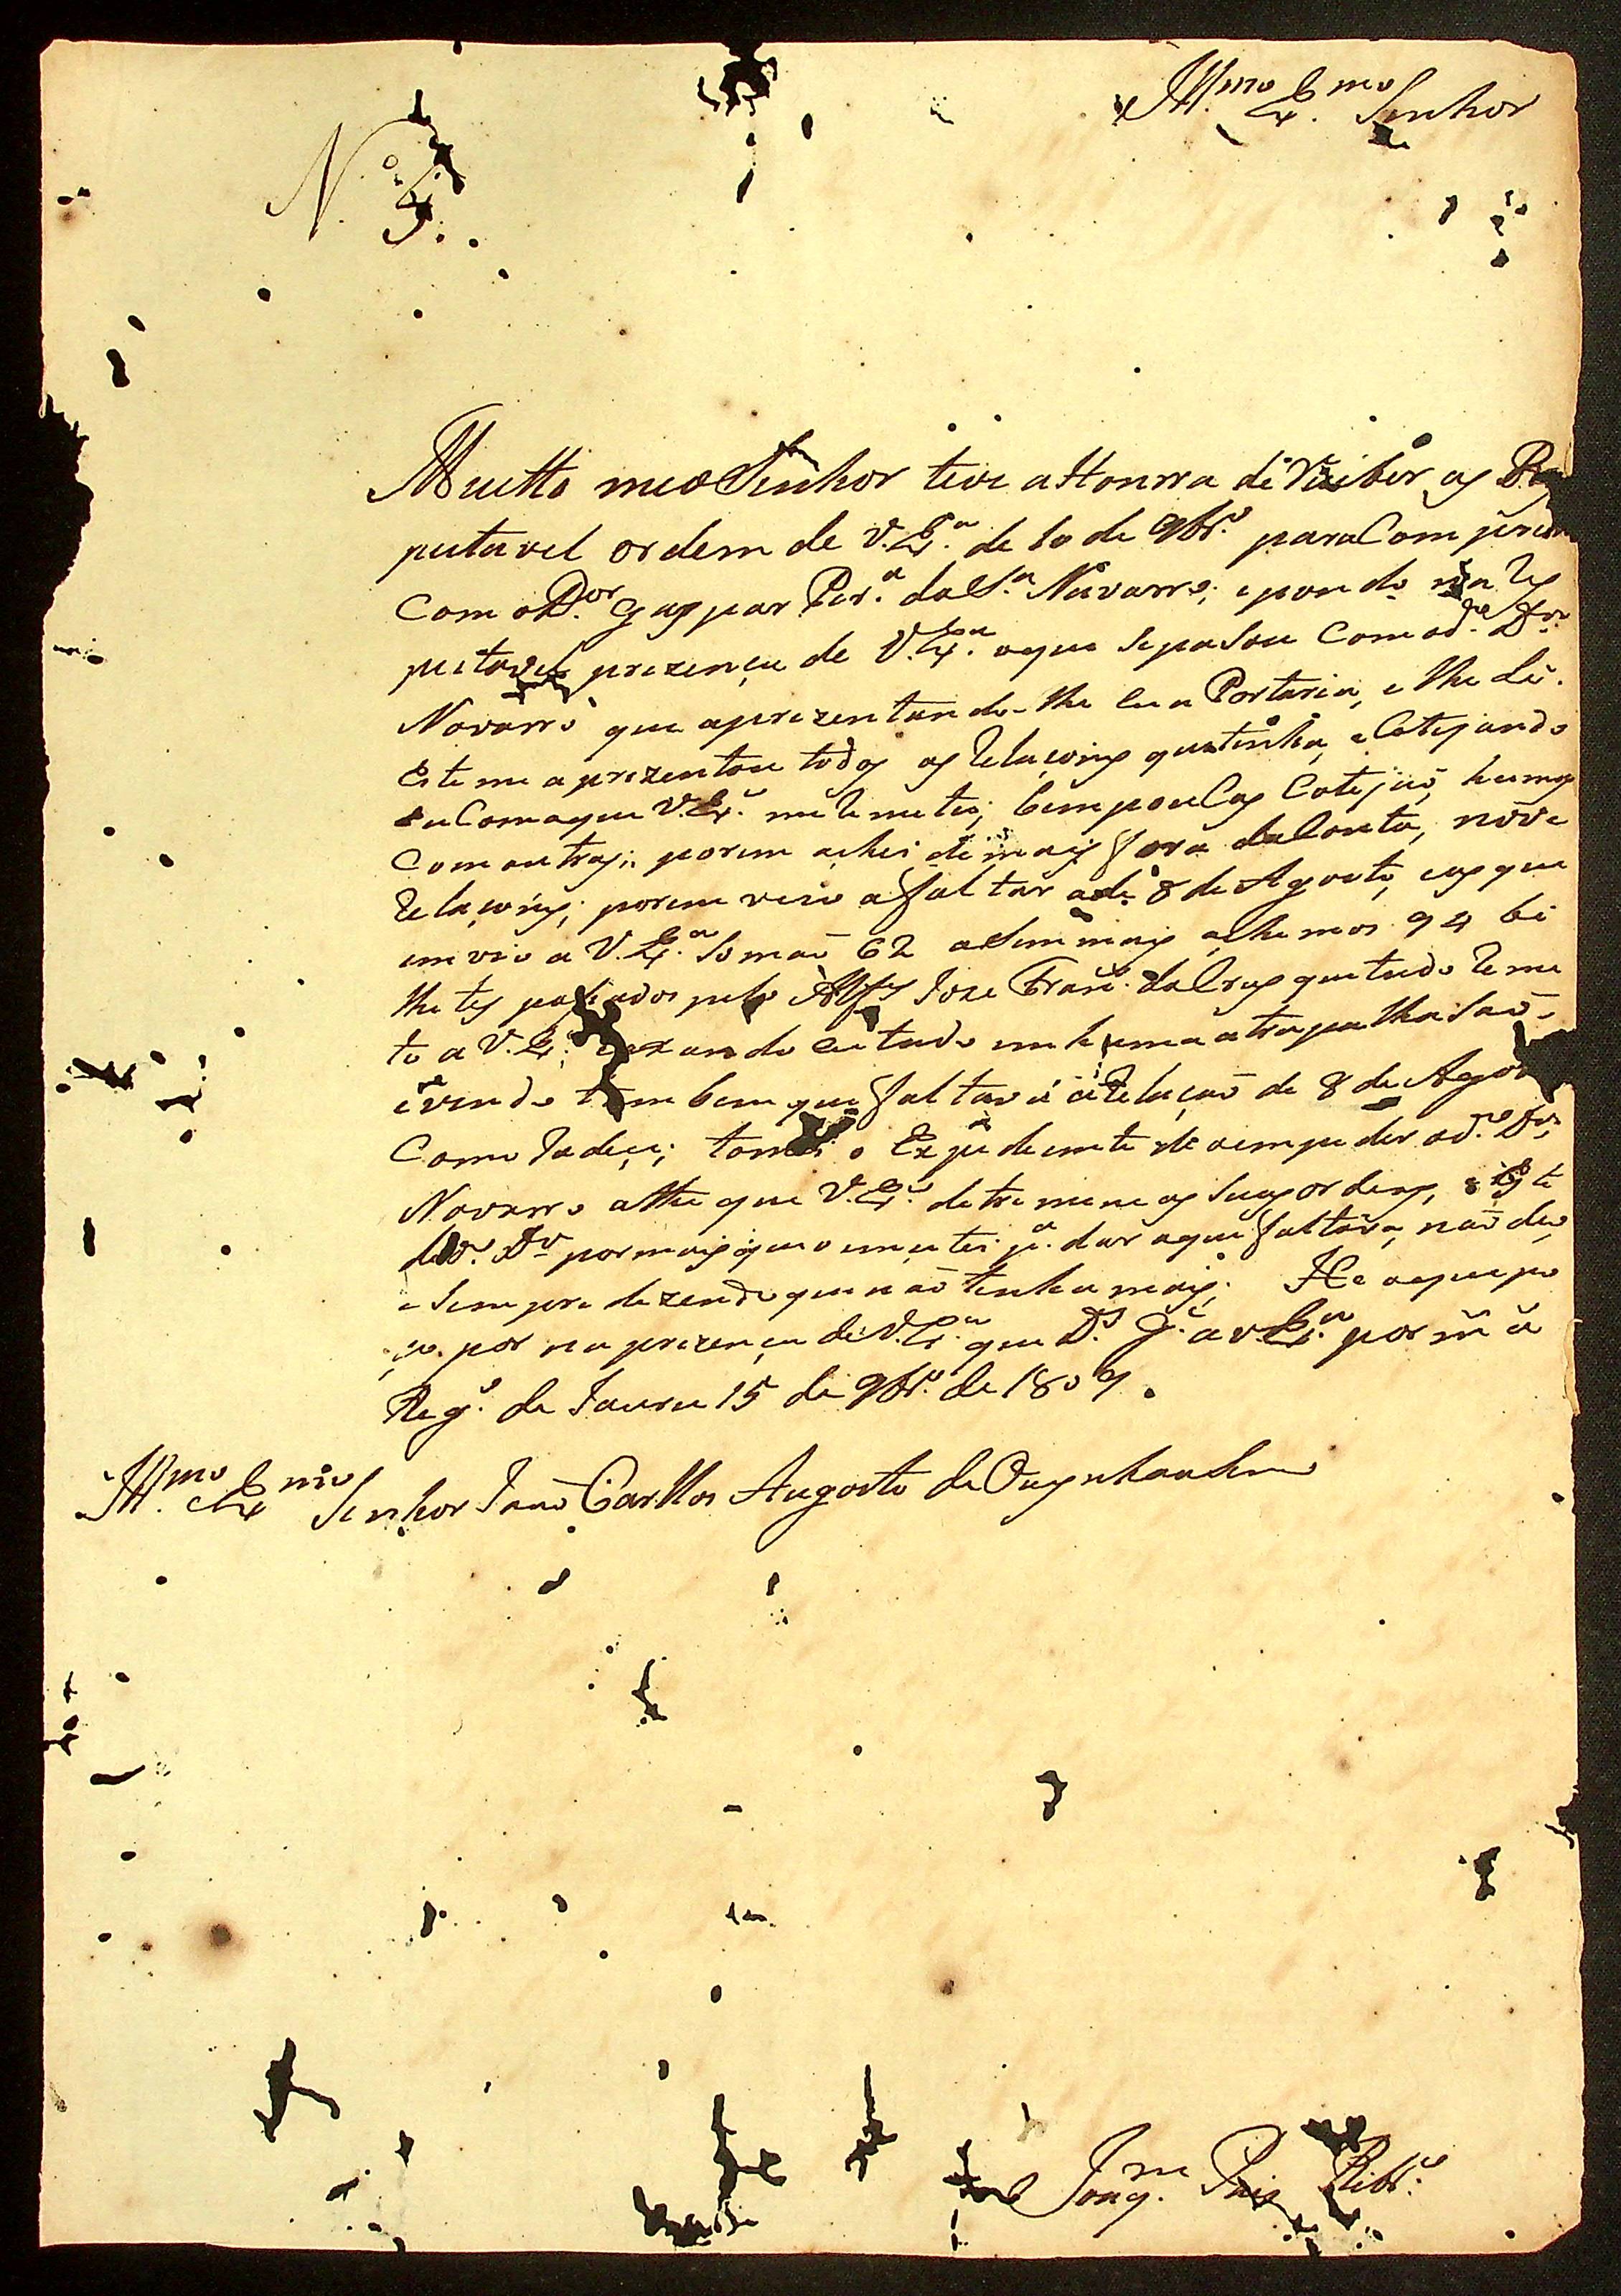 Ill.mo Ex.mo Senhor
N.º 5.
Muetto meo Senhor tive a Honrra de Resiber as Res
peitavel ordem de V. Ex.a de 10 de 9br.o para Com
Com o D.or Gaspar Per.a da S.a Navarro; e pondo na Res
peitavel prezença de V. Ex.a oque se pasou Com o d.o D.or
Navarro que aprezentando-lhe lua Portaria, e lhe
Este me aprezentou todos as Relaçoins que tinha, e Cotejando
eu Com aque V. Ex.a me Remeteu; bem poucas Cotejaõ humas
Com outras; porem achei de mais fora da Conta, nove
Relaçoins; porem veio a faltar a de 8 de Agosto, e as que
em vio a V. Ex.a Somaõ 62 a Sim mais achemos 94 bi
lhetes pasados pelo Alfs Joze Fran.co da Crus que tudo Reme
to a V. Ex.a; endo eu tudo em huma atrapalhasaõ
e vendo tambem que faltava a Relaçaõ de 8 de Agos
Como Tadeu; tomei o Expidiente de o empeder o d.o D.or
Navarro athe que V. Ex.a detremine as Suas ordens, e Este
d.o D.or por mais que o emmeti p.a dar aque faltava, naõ deu,
e Sempre dezendo que naõ tenha mais. He o que po
ço por na prezença de V. Ex.a que D.s G.e a V. Ex.a por m.s a
Reg.o de Jauru 15 de 9br.o de 1809.
Ill.mo Ex.mo Senhor Joaõ Carllos Augosto de Oeynhausem
Joaq.m Pais Ribr.o